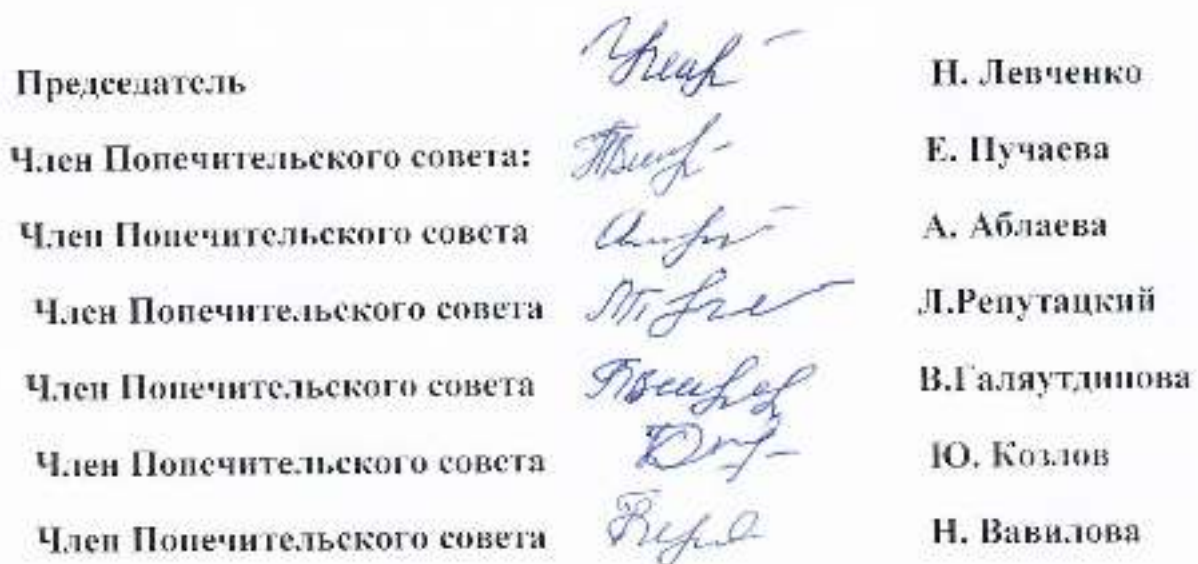 Председатель Н. Левченко
Член Попечительского совета: Е. Пучаева
Член Попечительского совета А. Аблаева
Член Попечительского совета Л.Репутацкий
Член Попечительского совета В.Галяутдинова
Член Попечительского совета Ю. Козлов
Член Попечительского совета Н. Вавилова